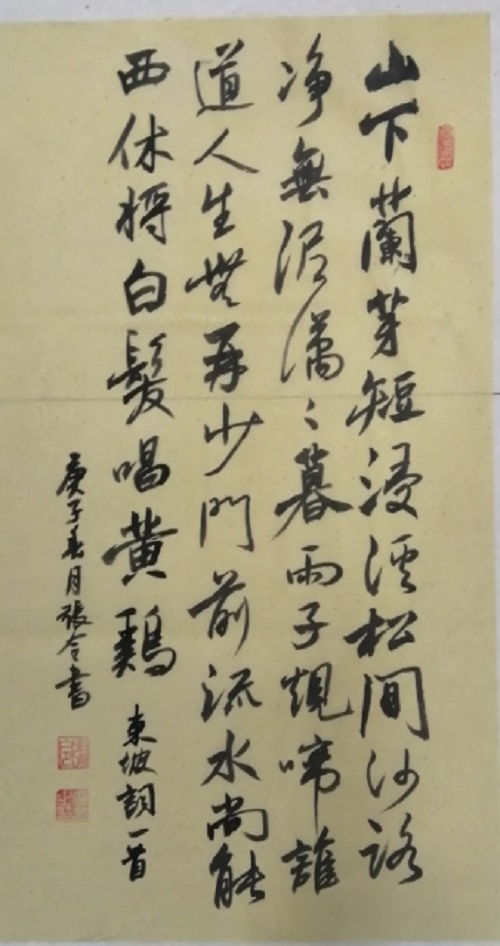 山下蘭芽短浸溪松間沙路
净無泥瀟〻暮雨子規啼誰
道人生無再少門前流水尚能
西休將白髮唱黄鷄
東坡詞一首
庚子春月張令書